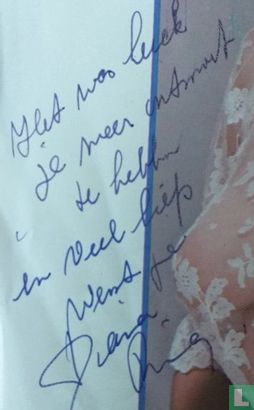 Het was leuk
je weer ontmoet
te hebben
en veel liefs
wenst je
Diana